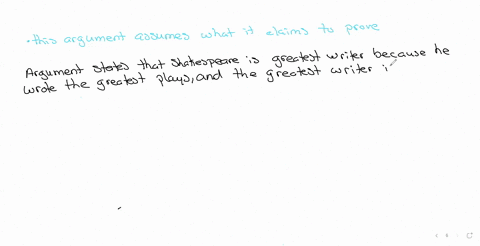 ·this argument assumes what it claims to prove
Argument states that Shakespeare is greatest writer because he
wrote the greatest plays, and the greatest writer i